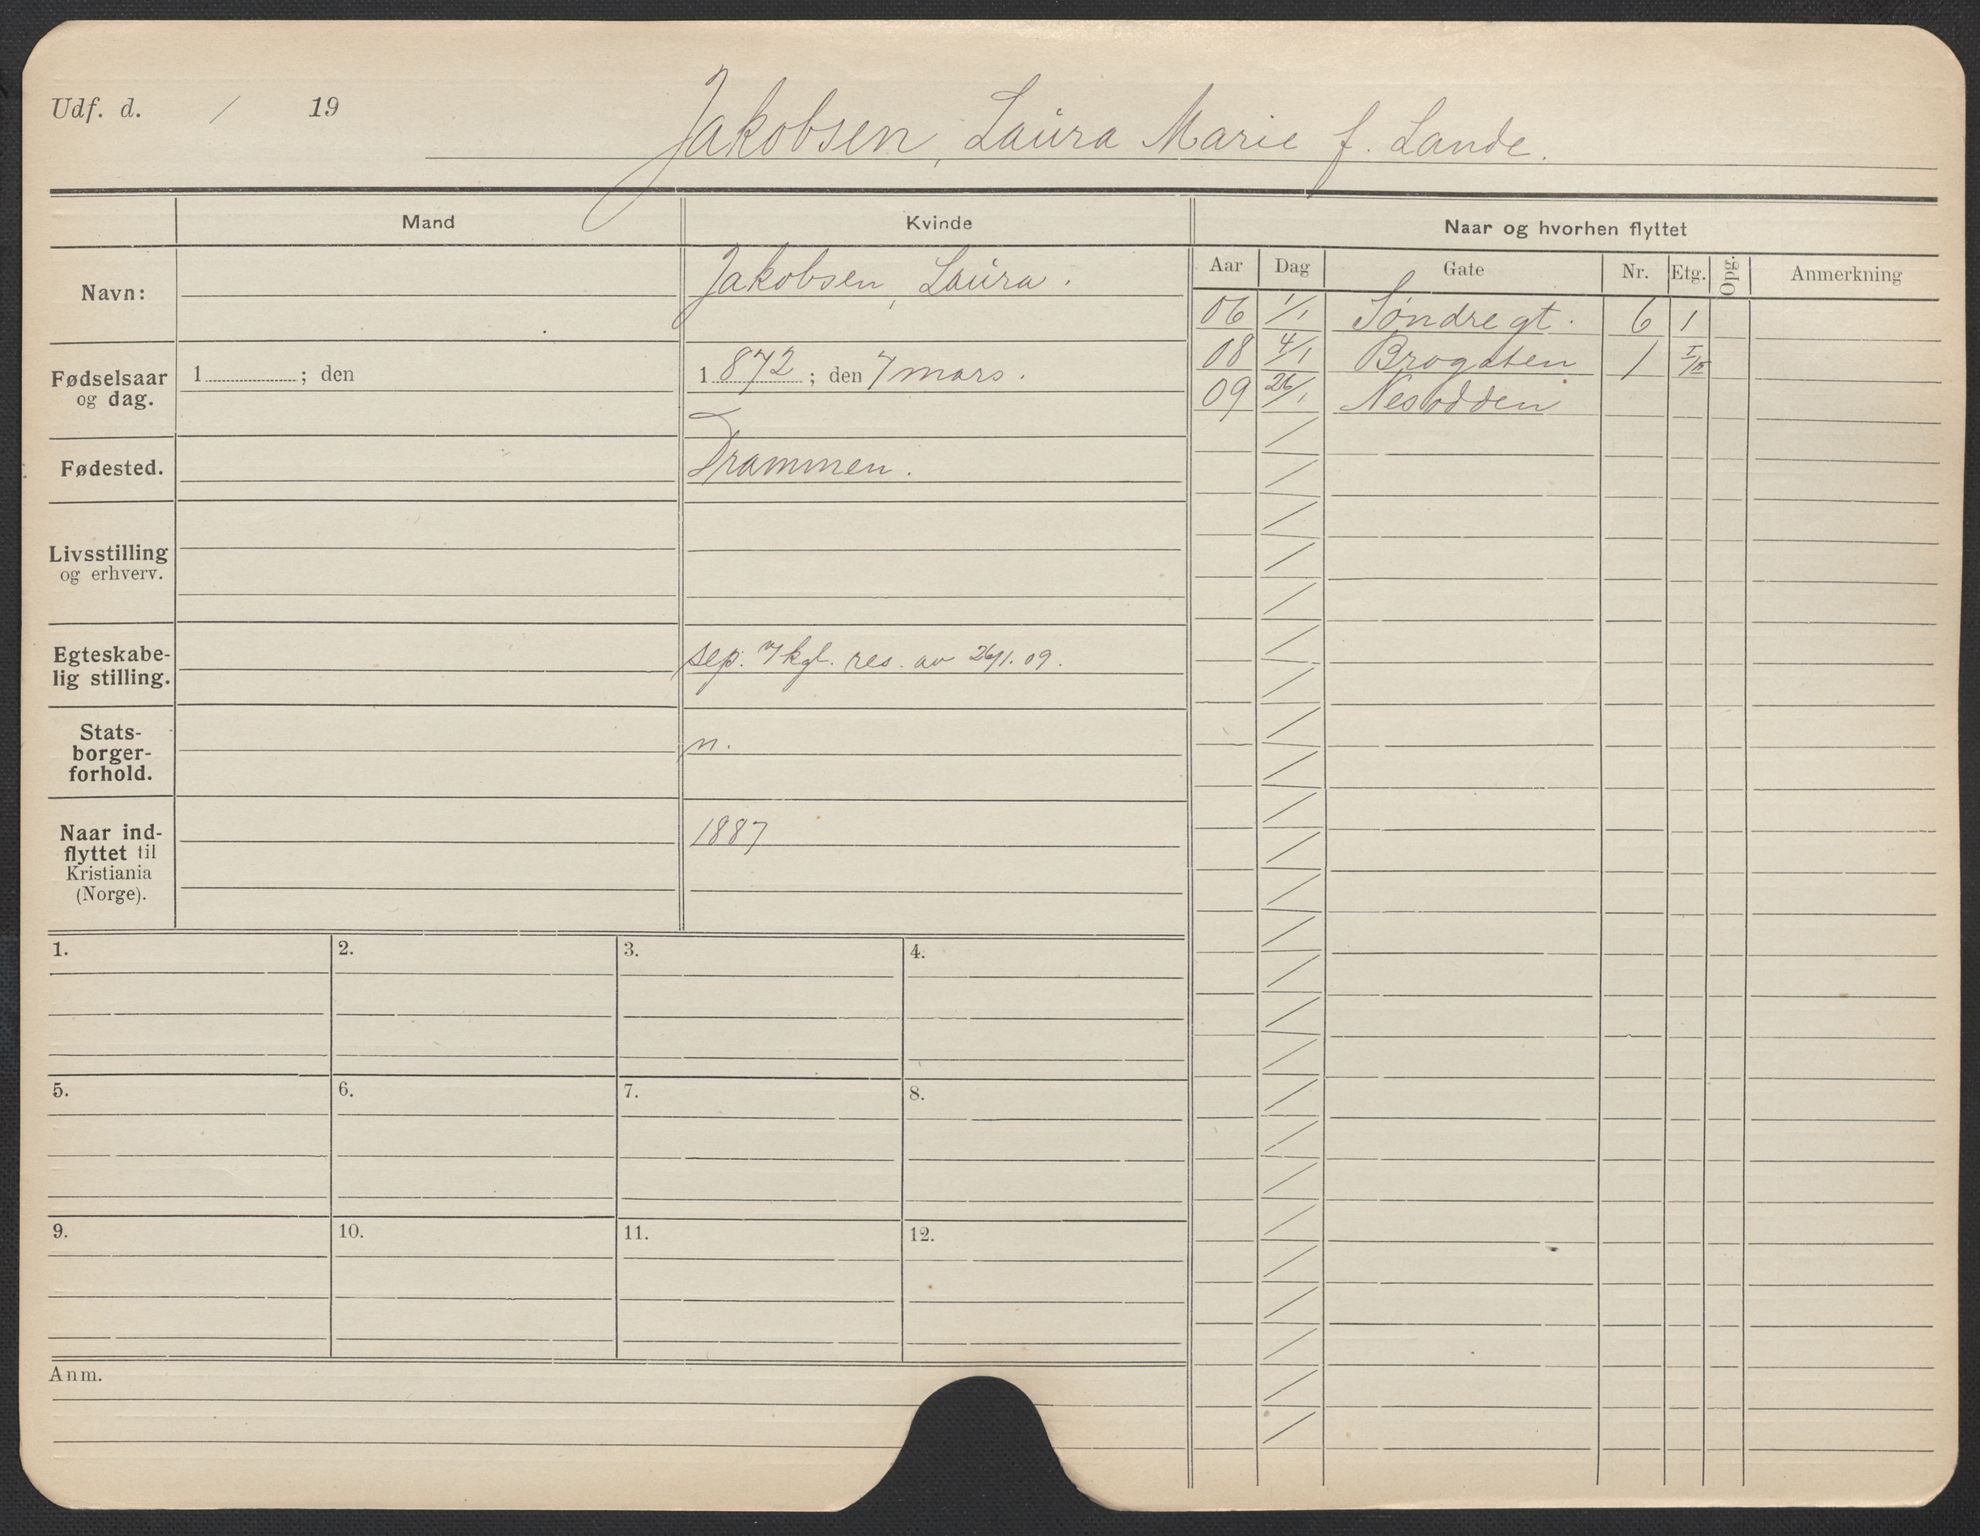 Udf. d. / 19
Jakobsen, Laura Marie f. Lande.
Mand
Kvinde
Naar og hvorhen flyttet
Aar Dag Gate Nr. Etg. Opg. Anmerkning
Navn:
Jakobsen, Laura.
06 1/1 Söndregt. 6 1
08 4/1 Brogaten 1 I/
09 26/1 Nesodden
Fødselsaar
og dag.
1 ; den
1872; den 7 mars.
Fødested.
Drammen.
Livsstilling
og erhverv.
Egteskabe-
lig stilling.
sep. kgl. res. av 26/1. 09.
Stats-
borger-
forhold.
n.
Naar ind-
flyttet til
Kristiania
(Norge).
1887
1. 2. 3. 4.
5. 6. 7. 8.
9. 10. 11. 12.
Anm.